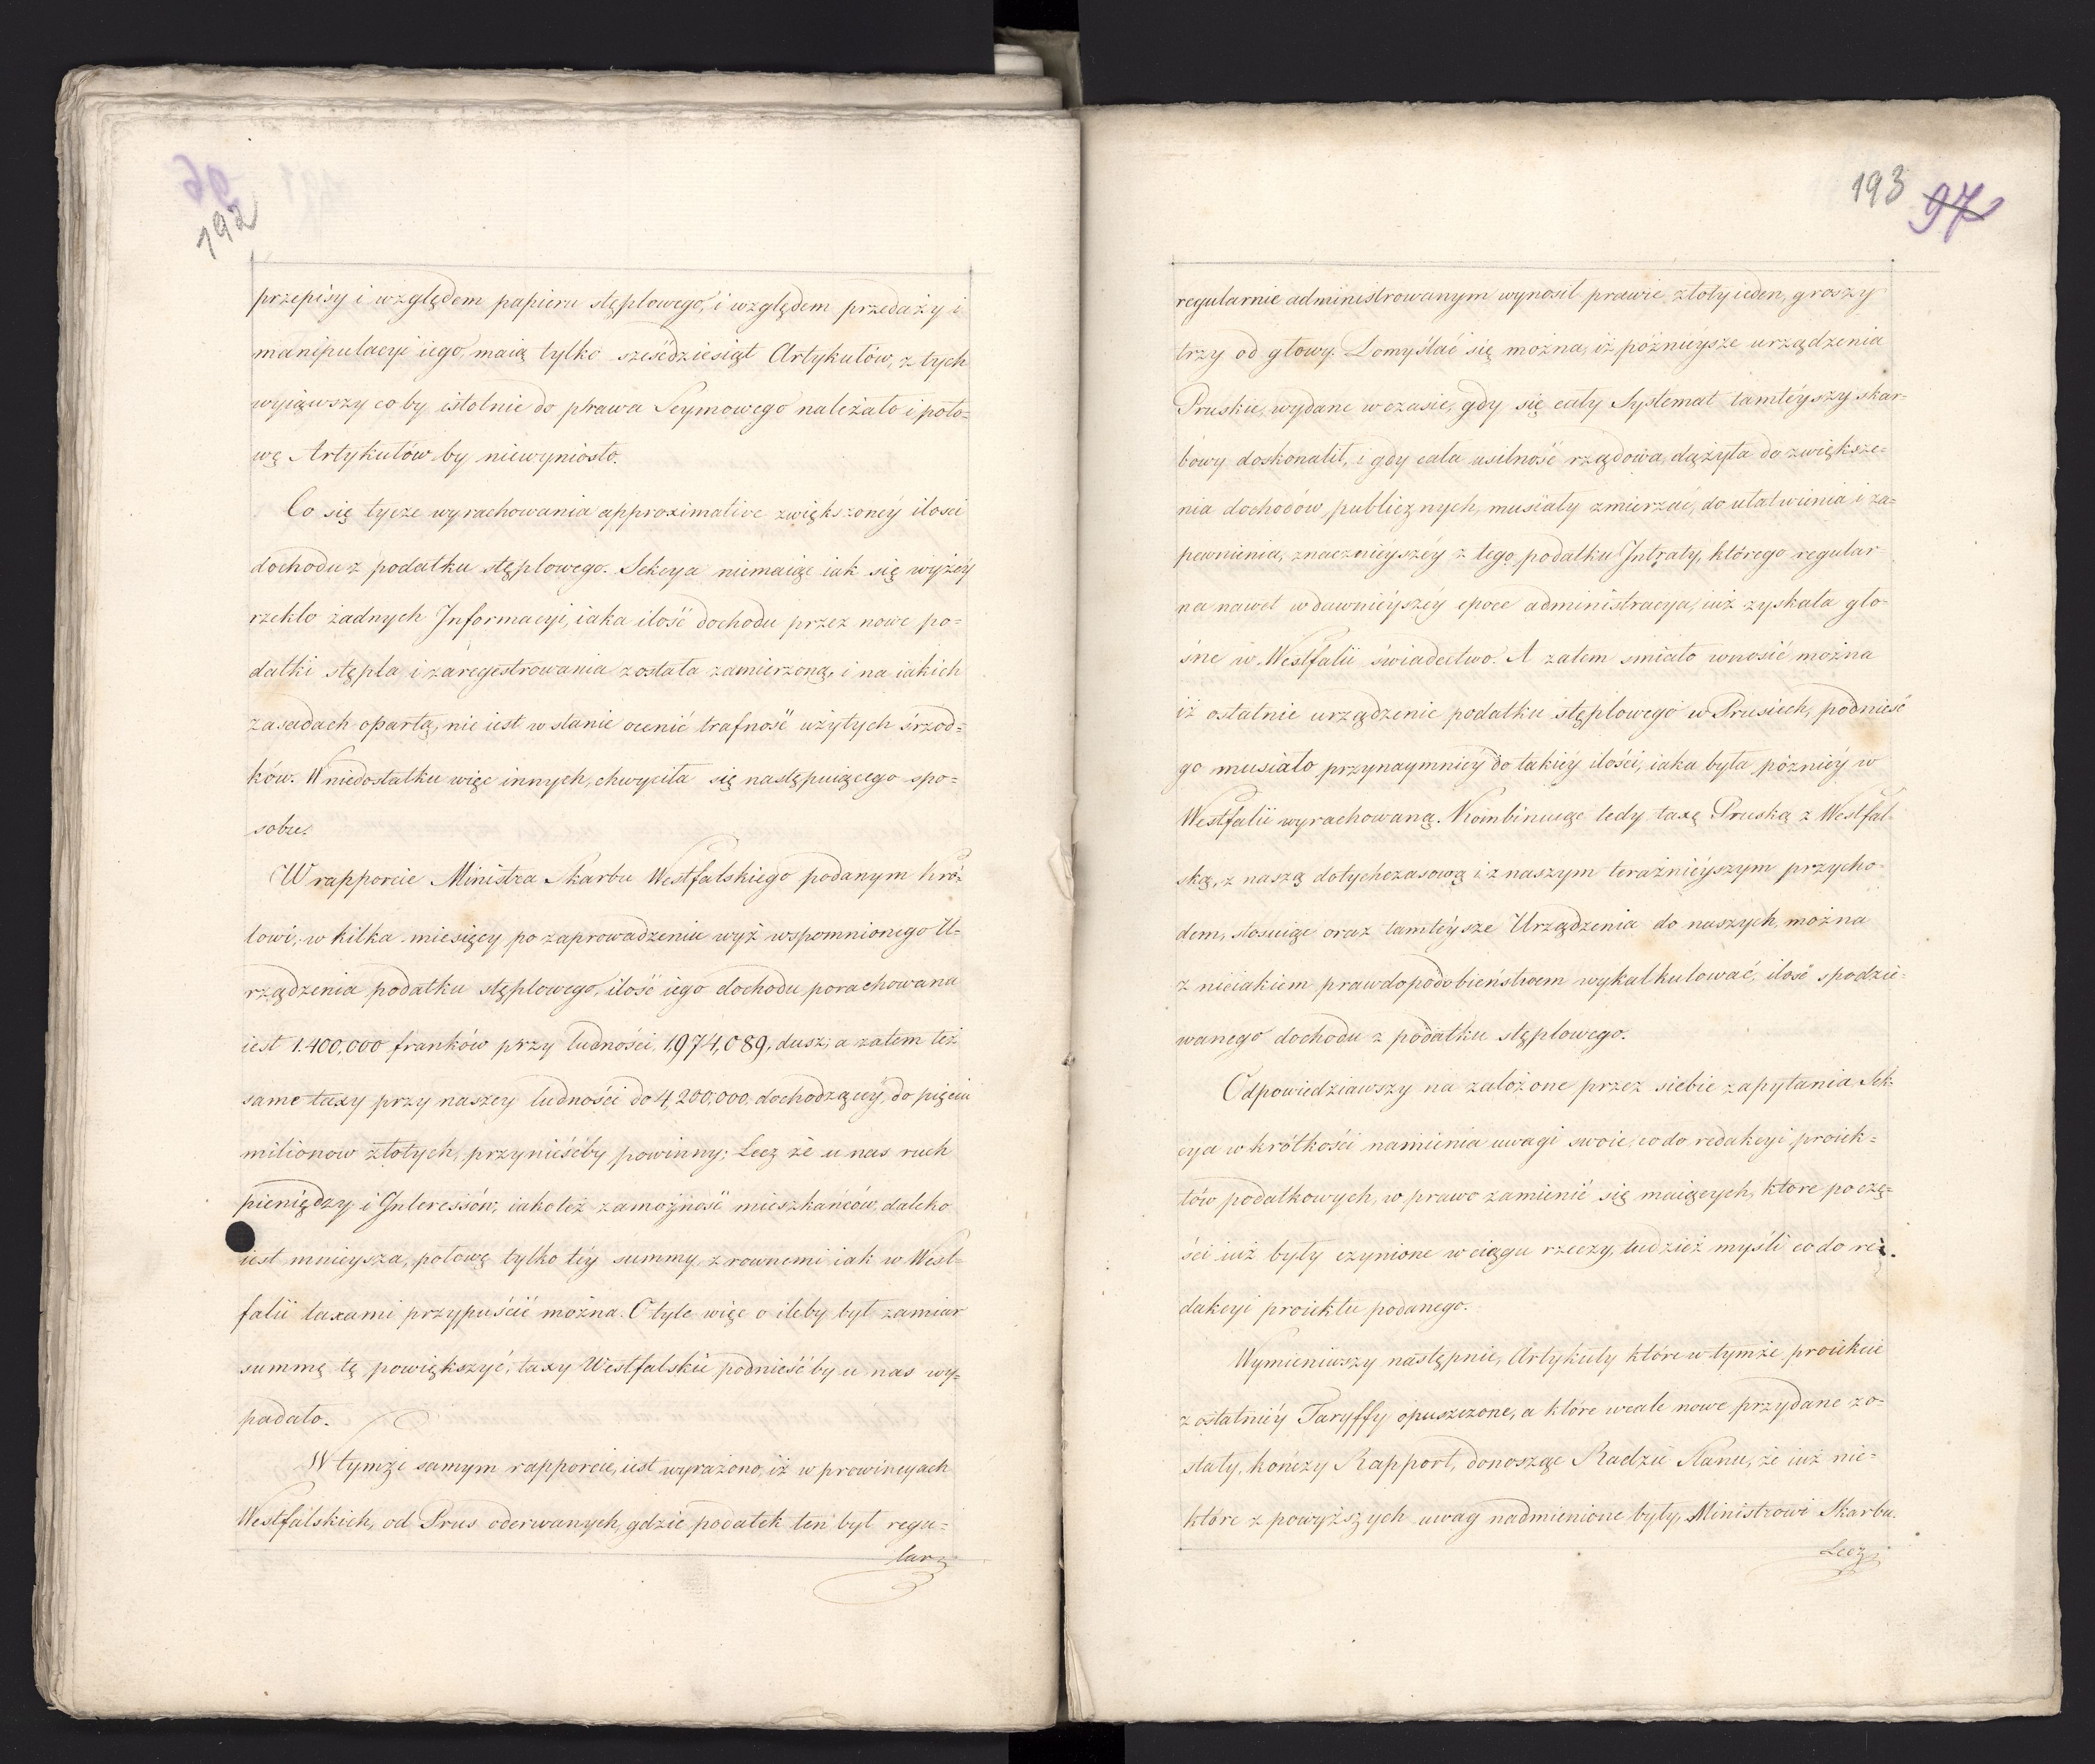 192
przepisy i względem papieru stęplowego, i względem przedaży i
manipulacyi iego, maią tylko sześćdziesiąt Artykułów, z tych
wyiąwszy co by istotnie do prawa Seymowego należało i poło-
wę Artykułów by niewyniosło.
Co się tycze wyrachowania approximative zwiększonéy ilosci
dochodu z podatku stęplowego. Sekcya niemaiąc iak się wyżéy
rzekło żadnych Informacyi, iaka ilość dochodu przez nowe po=
datki stępla i zaregestrowania została zamierzoną, i na iakich
zasadach opartą, nie iest w stanie ocenić trafność użytych śrzod=
ków. W niedostatku więc innych, chwyciła się następuiącego spo=
sobu.
W rapporcie Ministra Skarbu Westfalskiego podanym Kró=
lowi, w kilka miesięcy po zaprowadzeniu wyż wspomnionego U-
rządzenia podatku stęplowego, ilość iego dochodu porachowana
iest 1.400,000 franków przy ludności 1,974,089, dusz; a zatem też
same taxy przy naszey ludności do 4,200,000. dochodzącéy, do pięciu
milionow złotych, przynieśćby powinny; Lecz że u nas ruch
pieniędzy i Interessów, iakoteż zamożność mieszkańców, daleko
iest mnieysza, połowę tylko téy summy, z rownemi iak w West=
falii taxami przypuścić można. O tyle więc o ileby był zamiar
summę tę powiększyć, taxy Westfalskie podnieść by u nas wy=
padało.
W tymże samym rapporcie, iest wyrażono, iż w prowincyach
Westfalskich, od Prus oderwanych, gdzie podatek ten był regu=
lar=
193 97
regularnie administrowanym wynosił prawie złoty ieden, groszy
trzy od głowy. Domyślać się można, iż póznieysze urządzenia
Pruskie, wydane w czasie, gdy się cały Systemat tamtéyszy skar=
bowy doskonalił, i gdy cała usilność rządowa, dążyła do zwiększe=
nia dochodów publicznych, musiały zmierzać, do ułatwienia i za=
pewnienia, znacznieyszéy z tego podatku Intraty, którego regular=
na nawet w dawnieyszéy epoce administracya, iuż zyskała gło=
śne w Westfalii świadectwo. A zatem smiało wnosić można
iż ostatnie urządzenie podatku stęplowego w Prusiech, podnieść
go musiało przynaymniéy do takiéy ilości, iaka była pózniéy w
Westfalii wyrachowaną. Kombinuiąc tedy taxę Pruską z Westfal=
ską, z naszą dotychczasową i z naszym teraźnieyszym przycho=
dem, stosuiąc oraz tamtéysze Urządzenia do naszych, można
z nieiakiem prawdopodobieństwem wykalkulować, ilość spodzie=
wanego dochodu z podatku stęplowego.
Odpowiedziawszy na założone przez siebie zapytania Sek=
cya w krótkości namienia uwagi swoie, co do redakcyi proiek=
tów podatkowych, w prawo zamienić się maiących, które po czę=
ści iuż były czynione w ciągu rzeczy, tudzież myśli co do re=
dakcyi proiektu podanego.
Wymieniwszy następnie, Artykuły które w tymże proiekcie
z ostatniéy Taryffy opuszczone, a które wcale nowe przydane zo=
stały, kończy Rapport, donosząc Radzie Stanu, że iuż nie=
które z powyższych uwag nadmienione były Ministrowi Skarbu.
Lecz